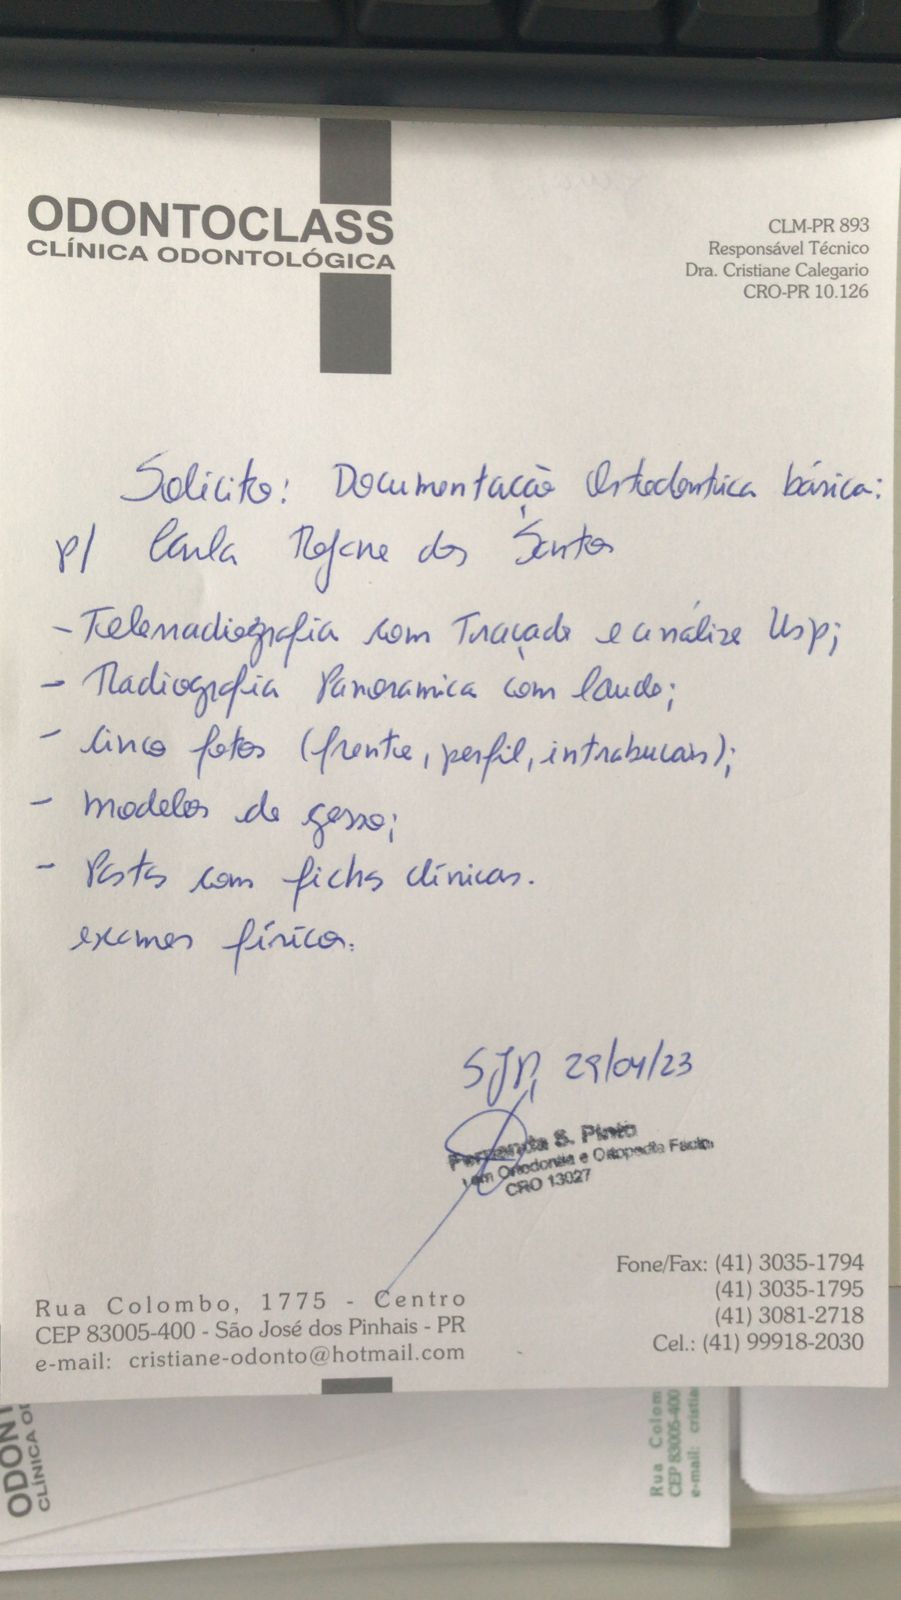 ODONTOCLASS
CLÍNICA ODONTOLÓGICA
CLM-PR 893
Responsável Técnico
Dra. Cristiane Calegario
CRO-PR 10.126
Solicito: Documentação Ortodontica básica:
p/ Carla Rejane dos Santos
- Telerradiografia com Traçado e análise Usp;
- Radiografia Panoramica com laudo;
- cinco fotos (frente, perfil, intrabucais);
- modelos de gesso;
- Pasta com fichas clínicas.
exames físicos.
SJP, 29/04/23
Fernanda S. Pinto
em Ortodontia e Ortopedia Facial
CRO 13027
Rua Colombo, 1775 - Centro
CEP 83005-400 - São José dos Pinhais - PR
e-mail: cristiane-odonto@hotmail.com
Fone/Fax: (41) 3035-1794
(41) 3035-1795
(41) 3081-2718
Cel.: (41) 99918-2030
ODONT
CLÍNICA O
Rua Colom
CEP 83005-400
e-mail: cristia